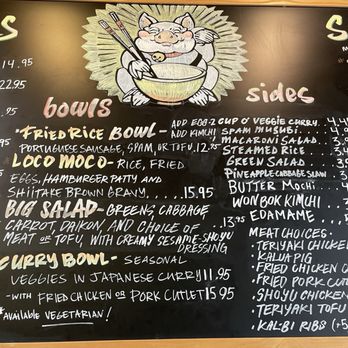 S
14.95
22.95
bowls
FRIED RICE BOWL- ADD EGG-2
ADD KIMCHI
PORTUGUESE SAUSAGE, SPAM, OR TOFU. 12.75
LOCO MOCO- RICE, FRIED
EGGS, HAMBURGER PATTY AND
SHIITAKE BROWN GRAVY.....15.95
BIG SALAD- GREENS, CABBAGE
CARROT, DAIKON, AND CHOICE OF ..13.95
MEAT OR TOFU, WITH CREAMY SESAME-SHOYU
DRESSING
CURRY BOWL- SEASONAL
VEGGIES IN JAPANESE CURRY 11.95
-WITH FRIED CHICKEN OR PORK CUTLET 15.95
*AVAILABLE VEGETARIAN!
sides
CUP O' VEGGIE CURRY.
SPAM MUSUBI
MACARONI SALAD
STEAMED RICE
GREEN SALAD
PINEAPPLE CABBAGE SLAW
BUTTER MOCHI
WON BOK KIMCHI
EDAMAME
MEAT CHOICES:
TERIYAKI CHICKEN
KALUA PIG
FRIED CHICKEN
FRIED PORK
SHOYU CHICKEN
TERIYAKI TOFU
KALBI RIBS (+5
S